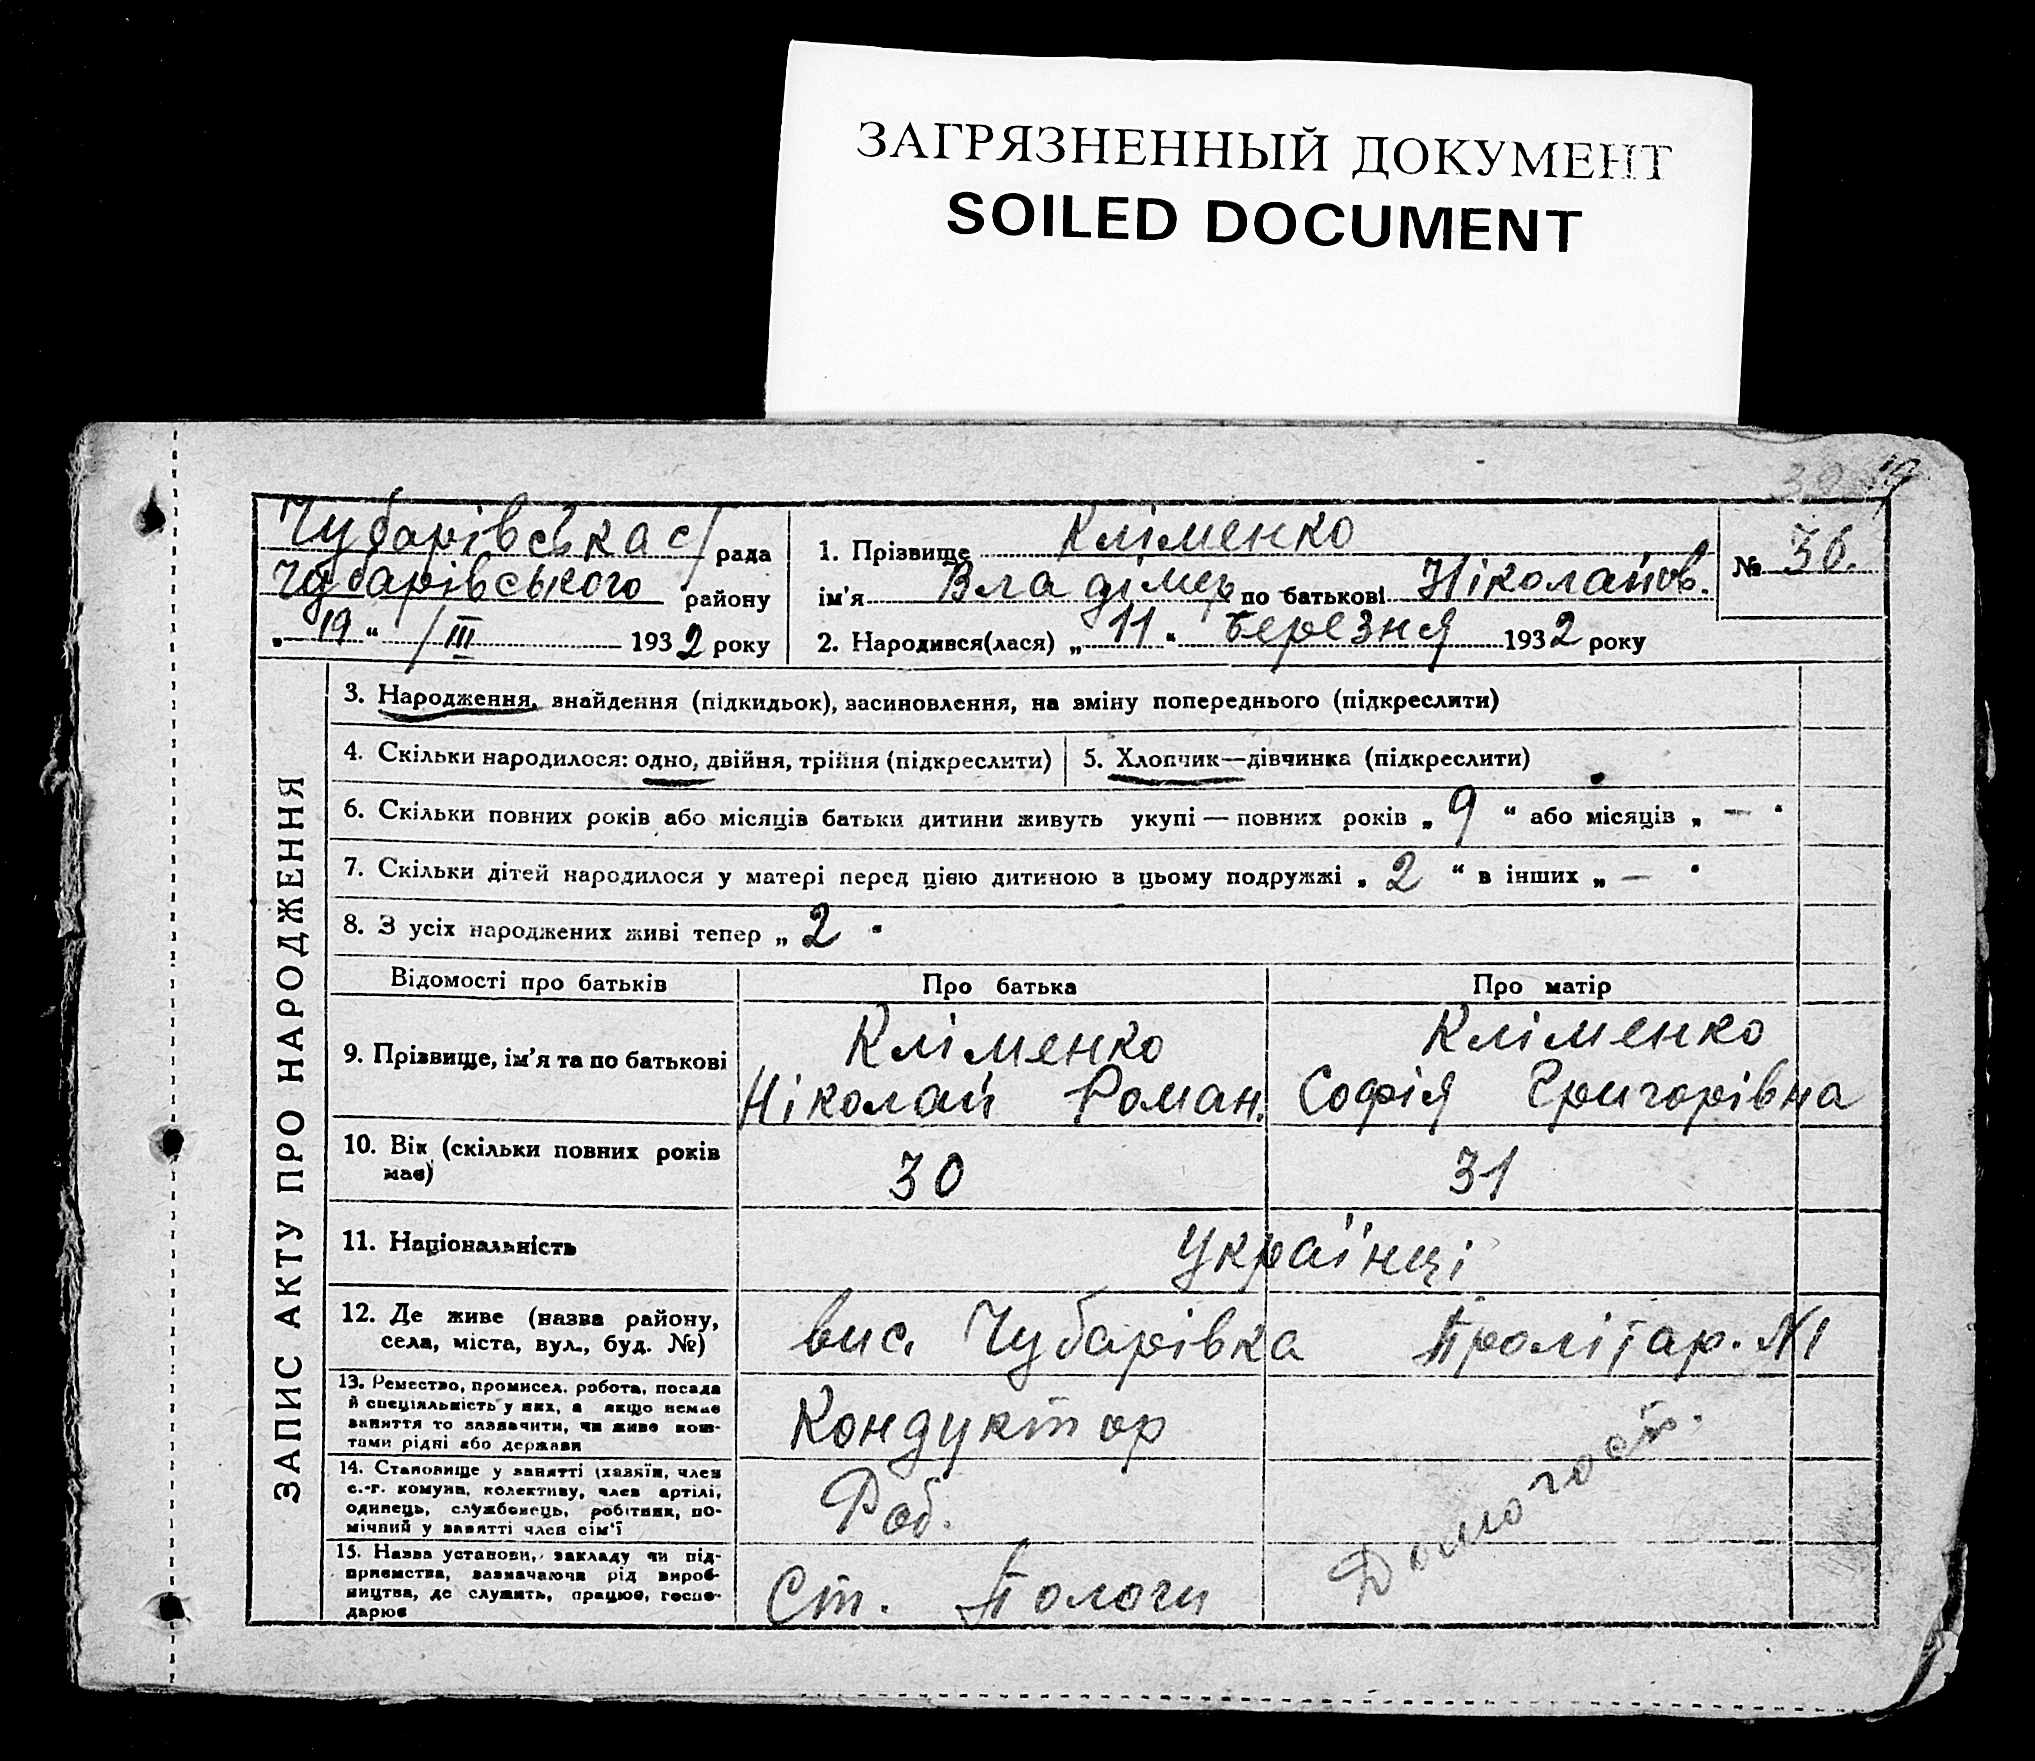 ЗАГРЯЗНЕННЫЙ ДОКУМЕНТ
SOILED DOCUMENT
Чубарівська с/рада
Чубарівського району
„19“ /III 1932 року
1. Прізвище Кліменко
ім'я Владімер по батькові Ніколайов.
№ 36.
2. Народився(лася) „11“ березня 1932 року
ЗАПИС АКТУ ПРО НАРОДЖЕННЯ
3. Народження, знайдення (підкидьок), засиновлення, на зміну попереднього (підкреслити)
4. Скільки народилося: одно, двійня, трійня (підкреслити)
5. Хлопчик—дівчинка (підкреслити)
6. Скільки повних років або місяців батьки дитини живуть укупі — повних років „ 9 “ або місяців „ — “
7. Скільки дітей народилося у матері перед цією дитиною в цьому подружжі „ 2 “ в інших „ — “
8. З усіх народжених живі тепер „ 2 “
Відомості про батьків
Про батька
Про матір
9. Прізвище, ім'я та по батькові
Кліменко
Ніколай Роман.
Кліменко
Софія Григорівна
10. Вік (скільки повних років
має)
30
31
11. Національність
Українці
12. Де живе (назва району,
села, міста, вул., буд. №)
вис. Чубарівка Пролітар. №1
13. Ремество, промисел, робота, посада
й спеціяльність у них, а якщо немає
заняття то зазначити, чи живе кош-
тами рідні або держави
Кондуктор
14. Становище у занятті (хазяїн, член
с.-г. комуни, колективу, член артілі,
одинець, службовець, робітник, по-
мічний у занятті член сім'ї
Роб.
15. Назва установи, закладу чи під-
приємства, зазначаючи рід вироб-
ництва, де служить, працює, госпо-
дарює
Ст. Пологи
Домогосп.